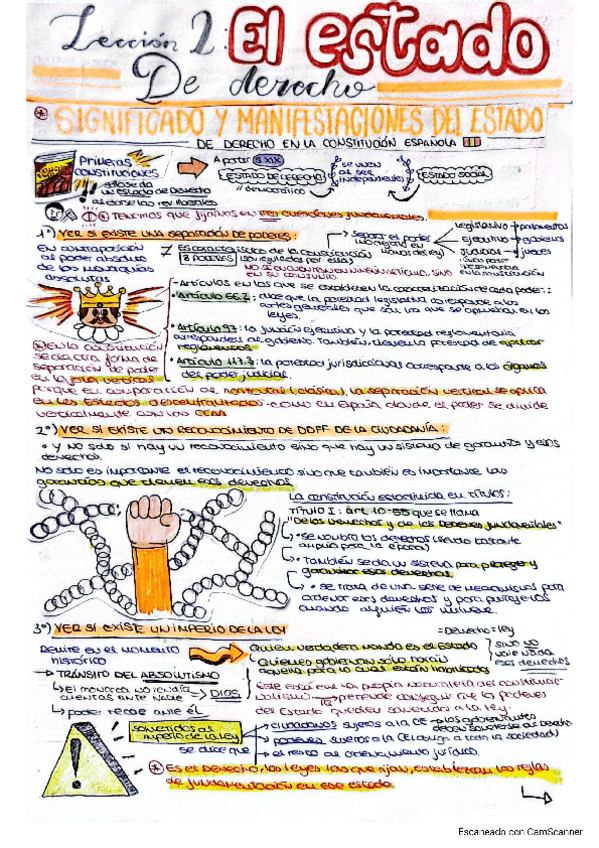 Lección 2: El estado
De derecho
* SIGNIFICADO Y MANIFESTACIONES DEL ESTADO
DE DERECHO EN LA CONSTITUCIÓN ESPAÑOLA
Primeras
constituciones
A partir S.XIX
ESTADO DE DERECHO
democrático
se unen
al ser
independientes
ESTADO SOCIAL
TENEMOS QUE fijarnos en tres cuestiones fundamentales
1º) VER SI EXISTE UNA SEPARACIÓN DE PODERES:
En contraposición
al poder absoluto
de las monarquías
absolutas
Característica de la constitución
3 PODERES
Separar el poder
legislativo → parlamentos
ejecutivo → gobiernos
judicial → jueces
NO SE ENCUENTRAN EN UN ÚNICO ARTÍCULO, SINO
EN SU CONJUNTO
- Artículos en los que se establece la caracterización de cada poder:
• Artículo 66.2: dice que la potestad legislativa corresponde a las
cortes generales que son las que se aprueban en las
leyes.
• Artículo 97: la función ejecutiva y la potestad reglamentaria
corresponden al gobierno. También tienen la potestad de aplicar
reglamentos
• Artículo 117.3: la potestad jurisdiccional corresponde a los órganos
del poder judicial.
* EN la constitución
se da otra forma de
separación de poder
en la forma vertical
porque en comparación al horizontal (clásica), la separación vertical se aplica
en los Estados descentralizados como en España donde el poder se divide
verticalmente con las CCAA
2º) VER SI EXISTE UN RECONOCIMIENTO DE DDFF DE LA CIUDADANÍA:
• Y no solo si hay un reconocimiento sino que hay un sistema de garantía y esos
derechos.
No solo es importante el reconocimiento sino que también es importante las
garantías que tienen esos derechos.
La constitución estructurada en títulos:
TÍTULO I: art. 10-55 que se llama
"De los Derechos y de los Deberes fundamentales"
• Se nombra los derechos (siendo bastante
amplio para la época)
• También se da un sistema para proteger y
garantizar esos derechos
• se trata de una serie de mecanismos para
ordenar esos derechos y para protegerlos
cuando alguien los vulnere.
3º) VER SI EXISTE UN IMPERIO DE LA LEY
=Derecho=ley
Remite en el momento
histórico
Quien verdadera manda es el Estado
Quienes gobiernan solo harán
aquello para lo cual están habilitados
sino no
esos derechos
→ TRÁNSITO DEL ABSOLUTISMO
el monarca no rendía
cuentas ante nadie
DIOS
poder recae ante él
Este está en la propia naturaleza del constitucio-
nalismo → pretende conseguir que los poderes
del Estado queden sometidos a la ley.
sometidos al
imperio de la ley
se dice que
ciudadanos sujetos a la CE
poderes, sujetos a la CE
el resto del ordenamiento jurídico.
* Es el Derecho, las leyes las que rijan, establezcan las reglas
de fundamentación en ese estado.
Escaneado con CamScanner